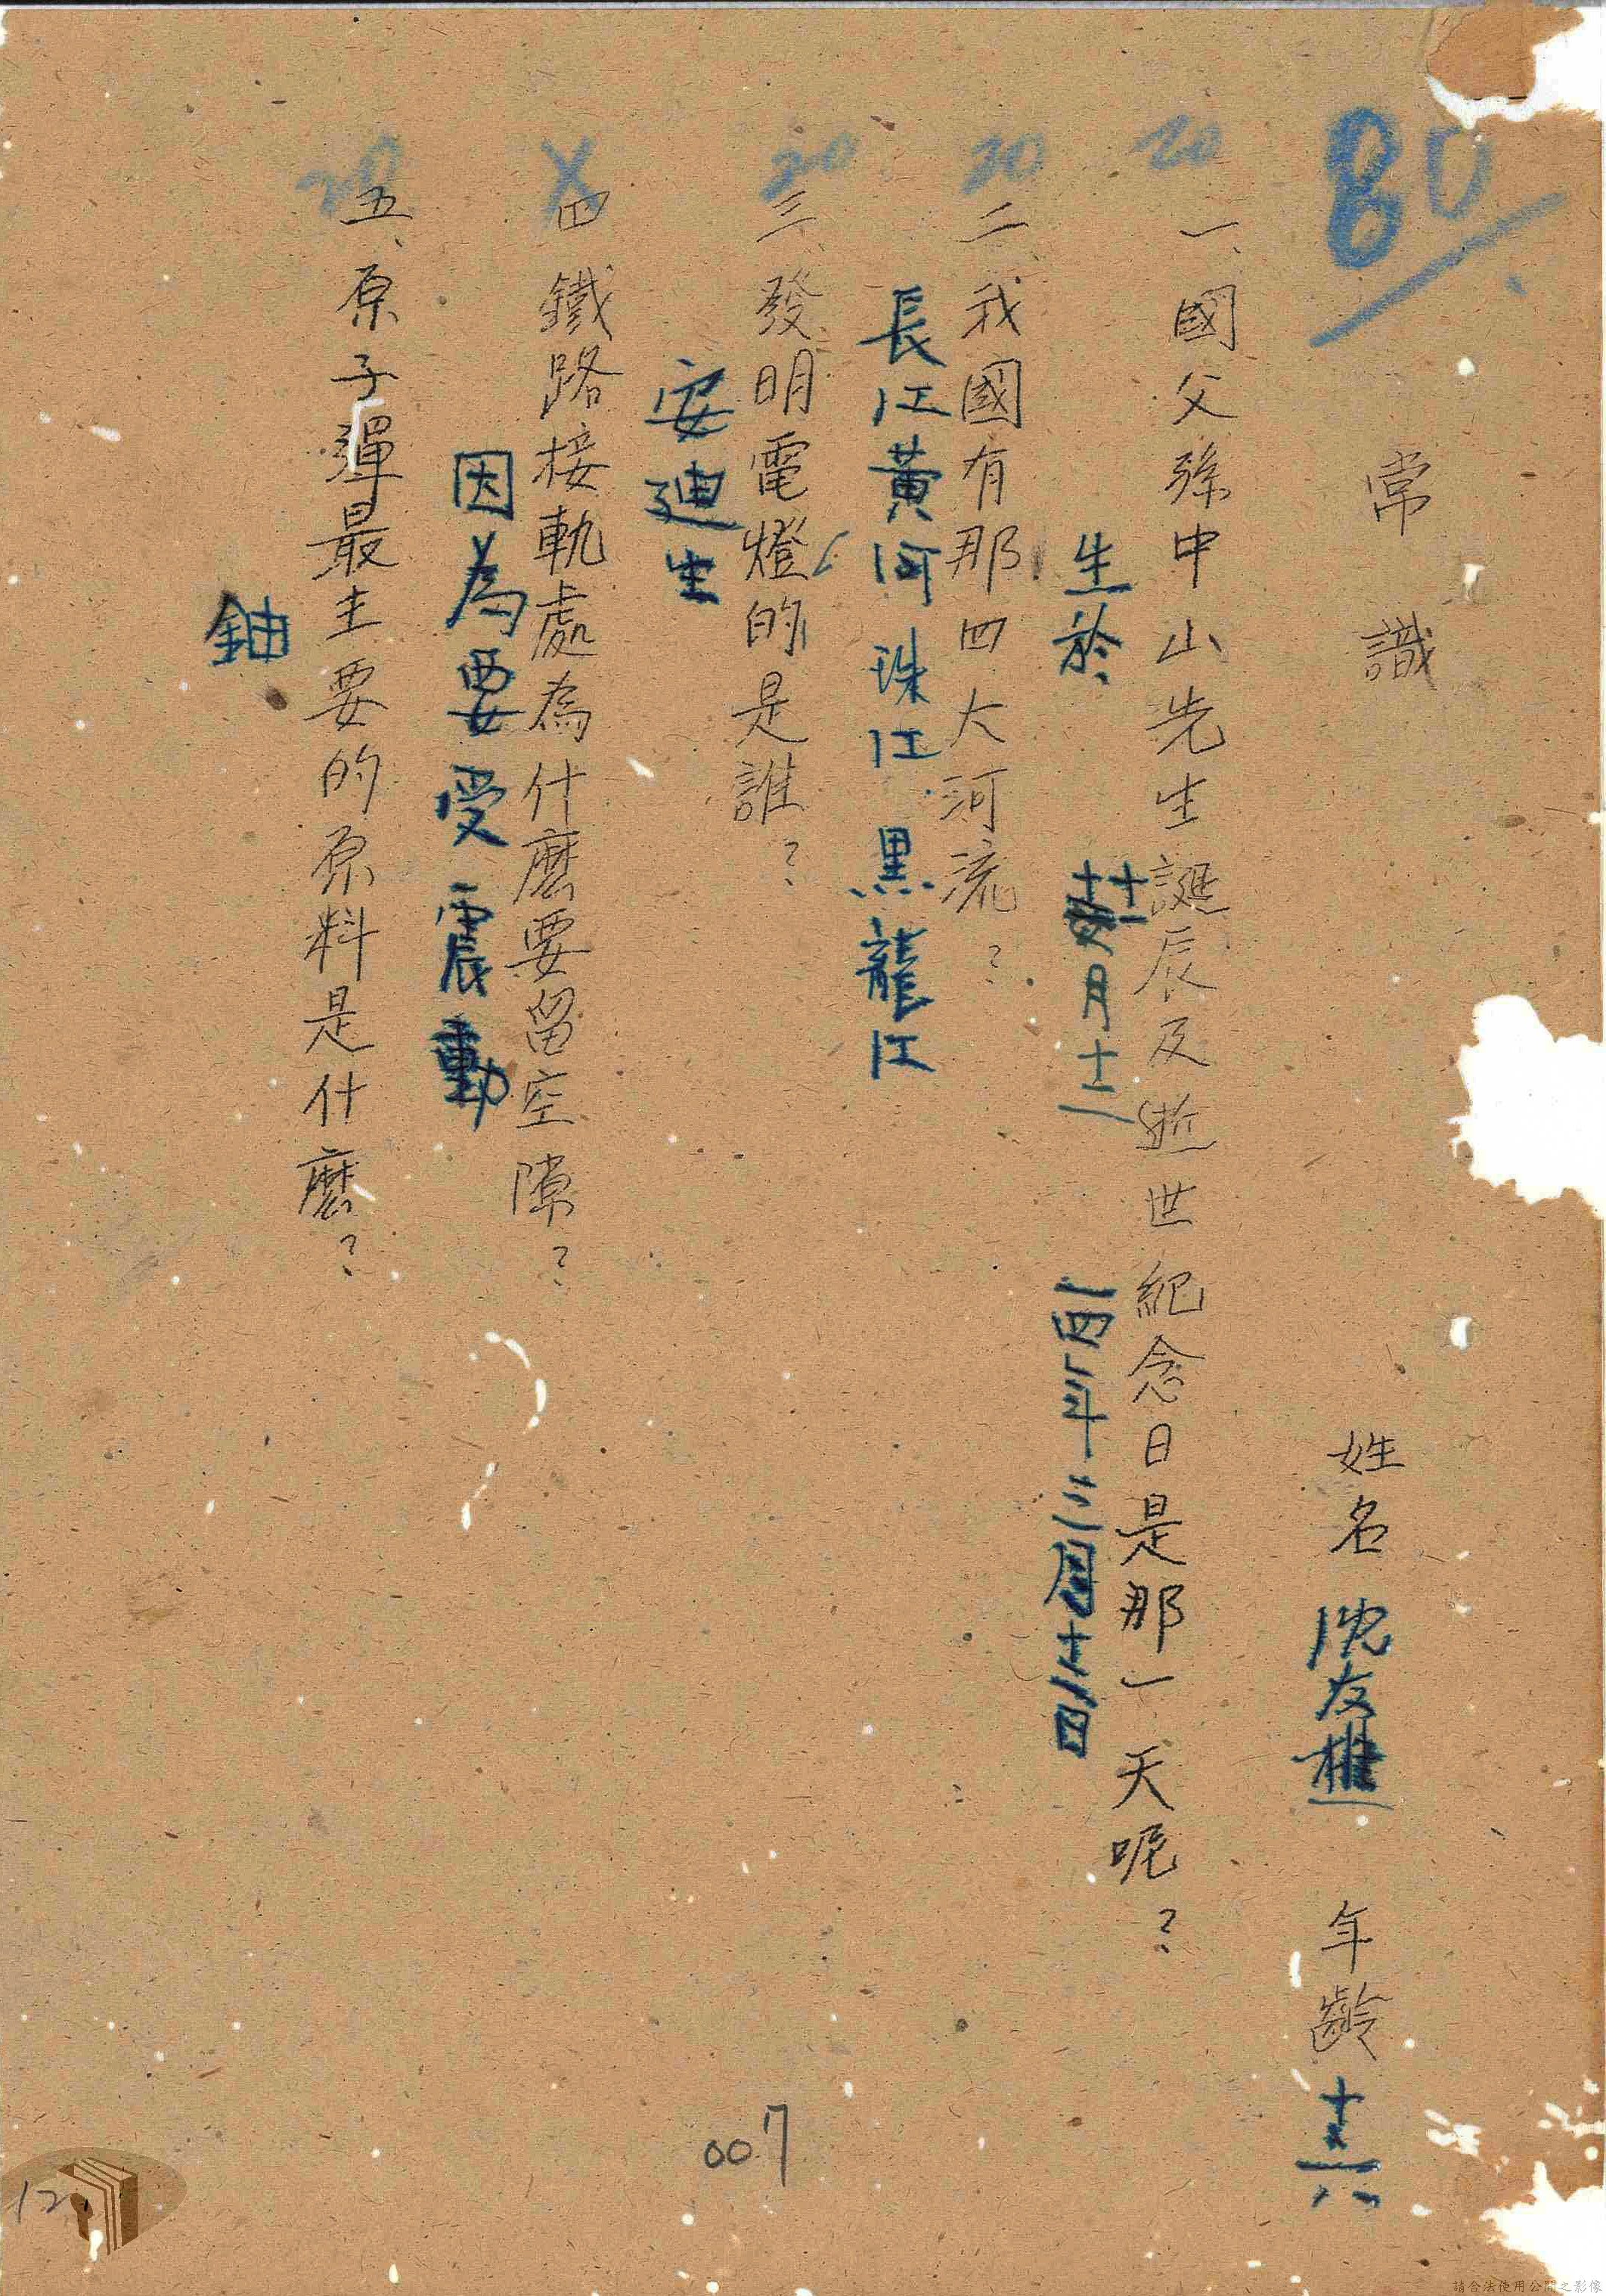 80
常識 姓名 沈友 年齡 十六
20
一、國父孫中山先生誕辰及逝世紀念日是那一天呢？
生於 十一月十二 一四年三月十二日
20
二、我國有那四大河流？
長江黃河珠江黑龍江
20
三、發明電燈的是誰？
安廸生
X
四、鐵路接軌處為什麼要留空隙？
因為要受震動
20
五、原子彈最主要的原料是什麼？
鈾
007
12
請合法使用公開之影像